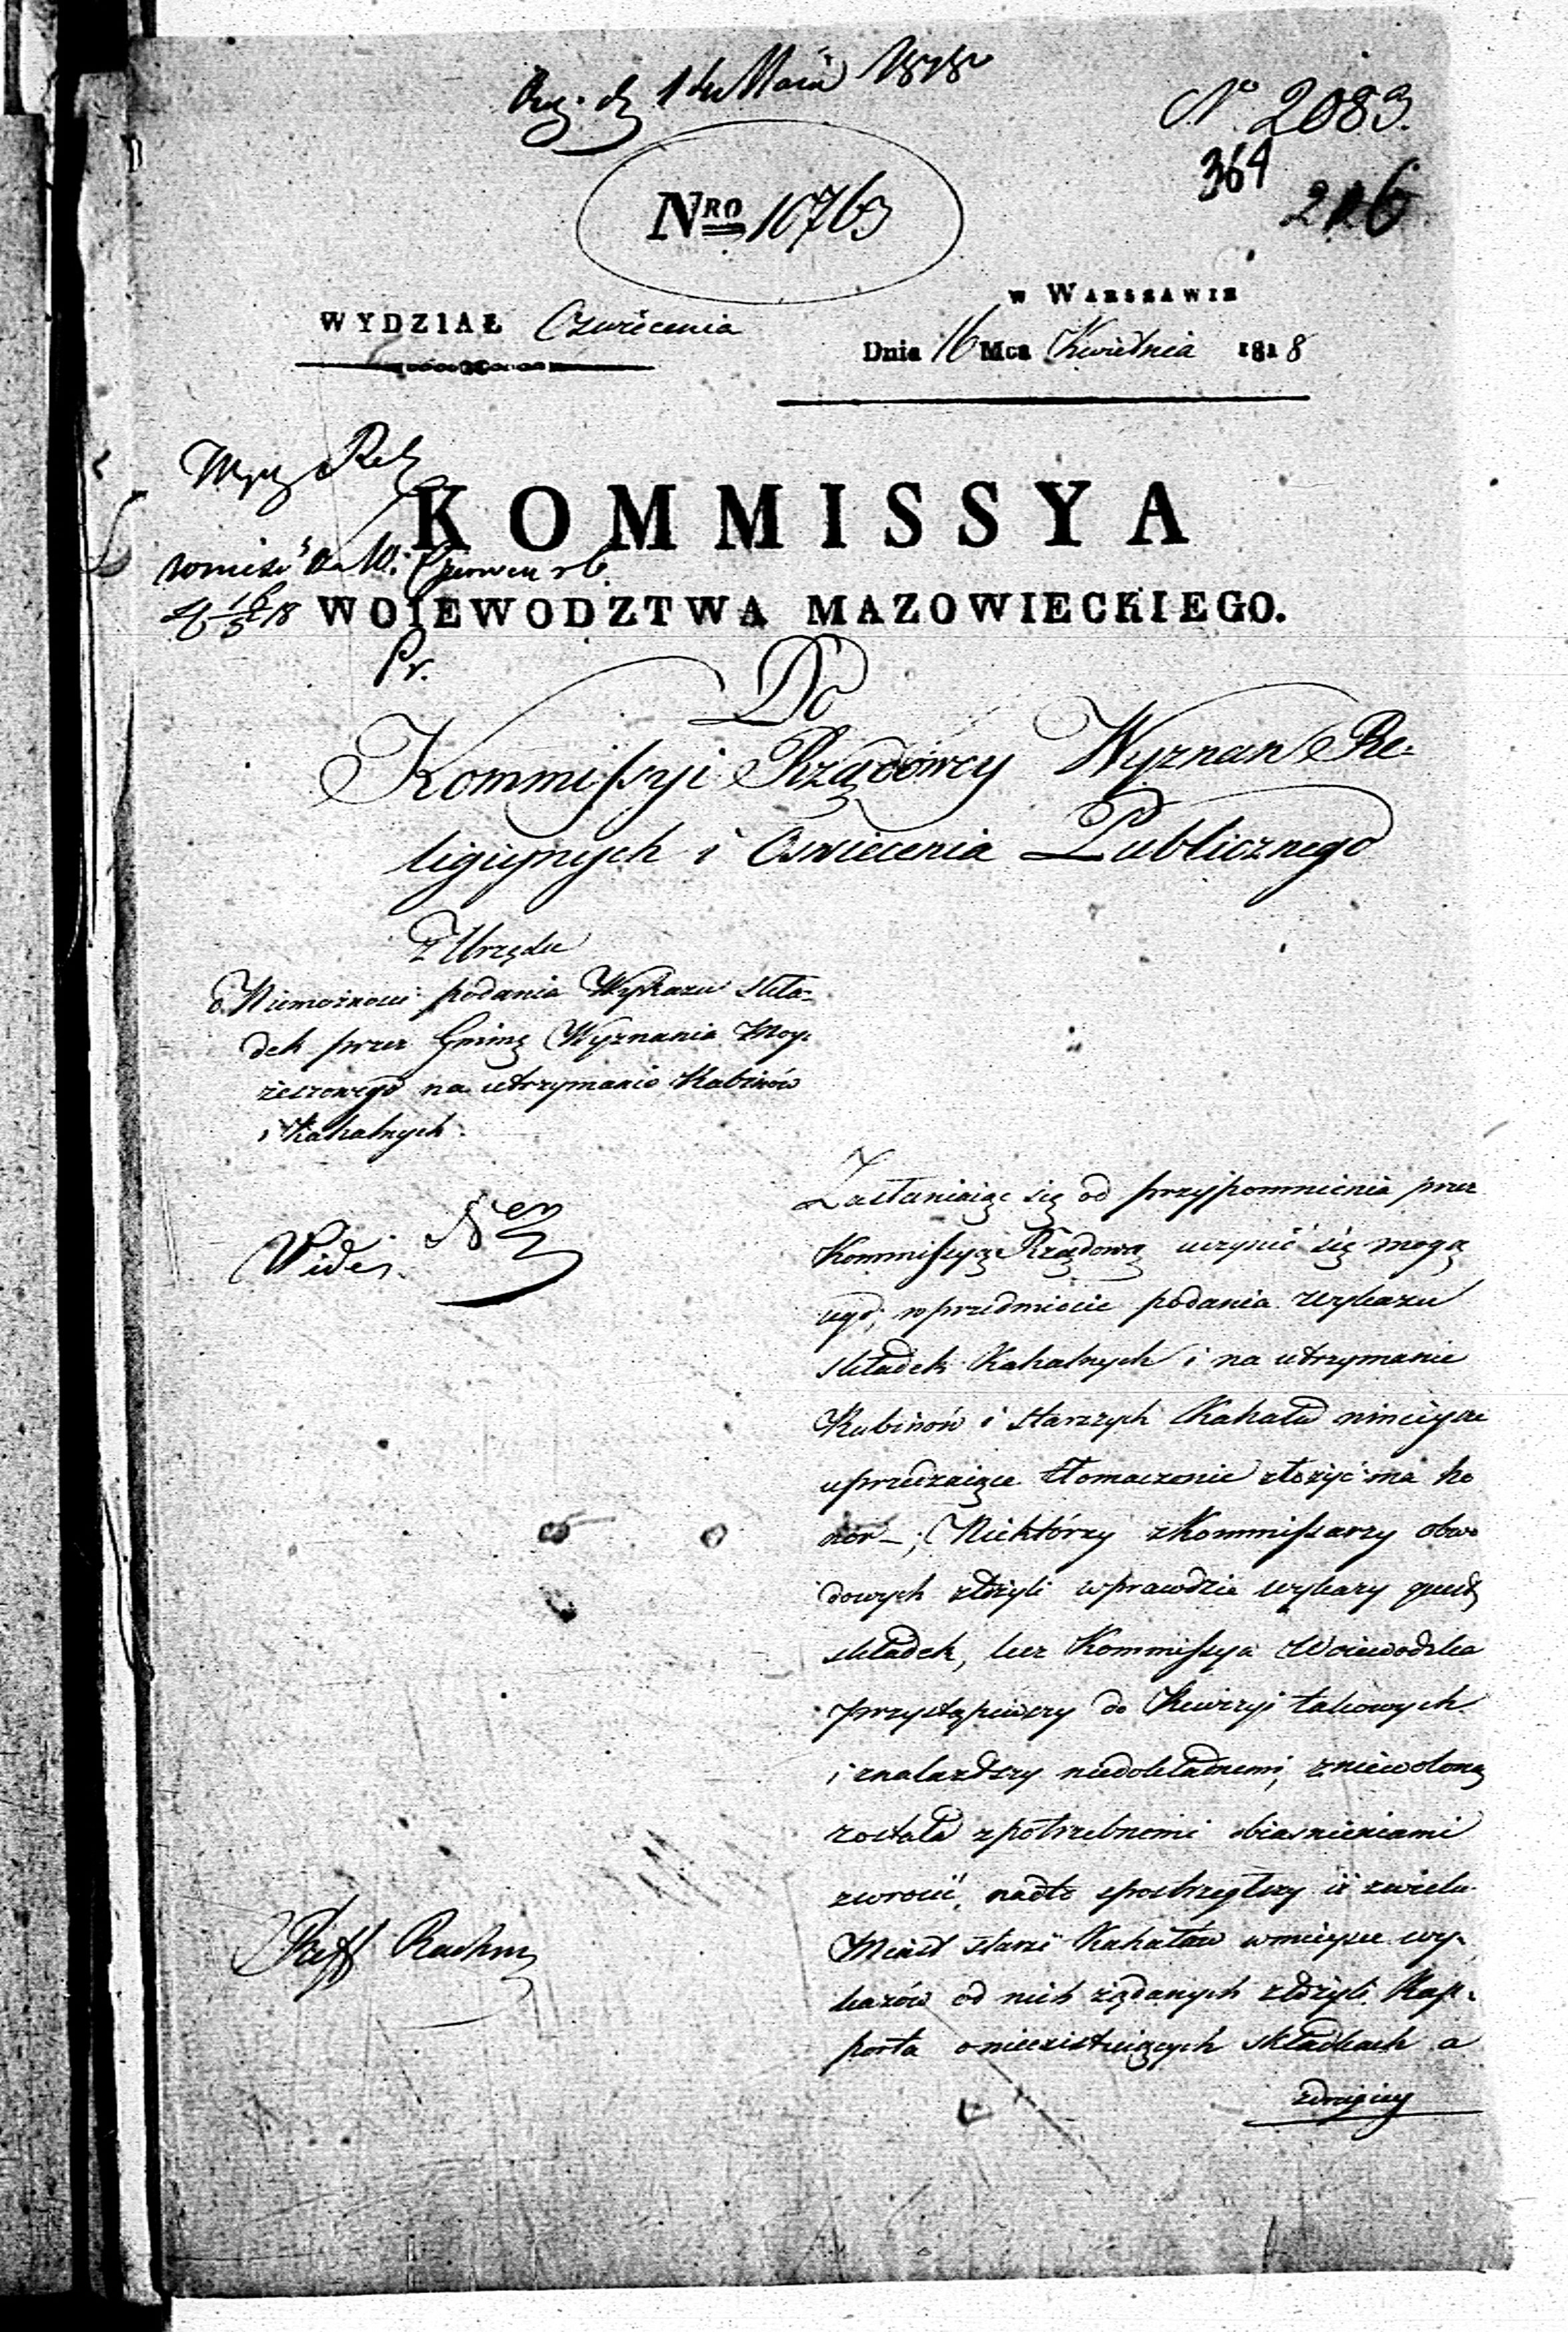 1 Maia 1818
No 2083.
364
216
NRO 10763
w WARSZAWIE
WYDZIAŁ Oswiécenia
Dnia 16 Mca Kwietnia 1818
KOMMISSYA
WOIEWODZTWA MAZOWIECKIEGO.
Pr.
Do
Kommissyi Rządowey Wyznan Re-
ligiynych i Oswiecenia Publicznego
Z Urzędu
o Niemożności podania Wykazu Skła-
dek przez Gminę Wyznania Moy-
żeszowego na utrzymanie Rabinów
i Kahalnych.
Vidi
Zasłaniaiąc się od przypomnienia przez
Kommissyą Rządową uczynić się mogą
cego, w przedmiocie podania Wykazu
składek Kahalnych i na utrzymanie
Rabinów i starszych Kahału ninieysze
uprzedzaiące tłomaczenie złożyć ma ho
nor –; Niektórzy z Kommissarzy obwo
dowych złożyli wprawdzie wykazy quest
składek, lecz Kommissya Woiewodzka
przystąpiwszy do Rewizyi takowych
i znalazłszy niedokładnemi, zniewoloną
została z potrzebnemi obiasnieniami
zwrocić, nadto spostrzegłszy iż z wielu
Miast starsi Kahałów w mieysce wy-
kazów od nich żądanych złożyli Rap-
porta o nieexistuiących składkach a
z drugiey